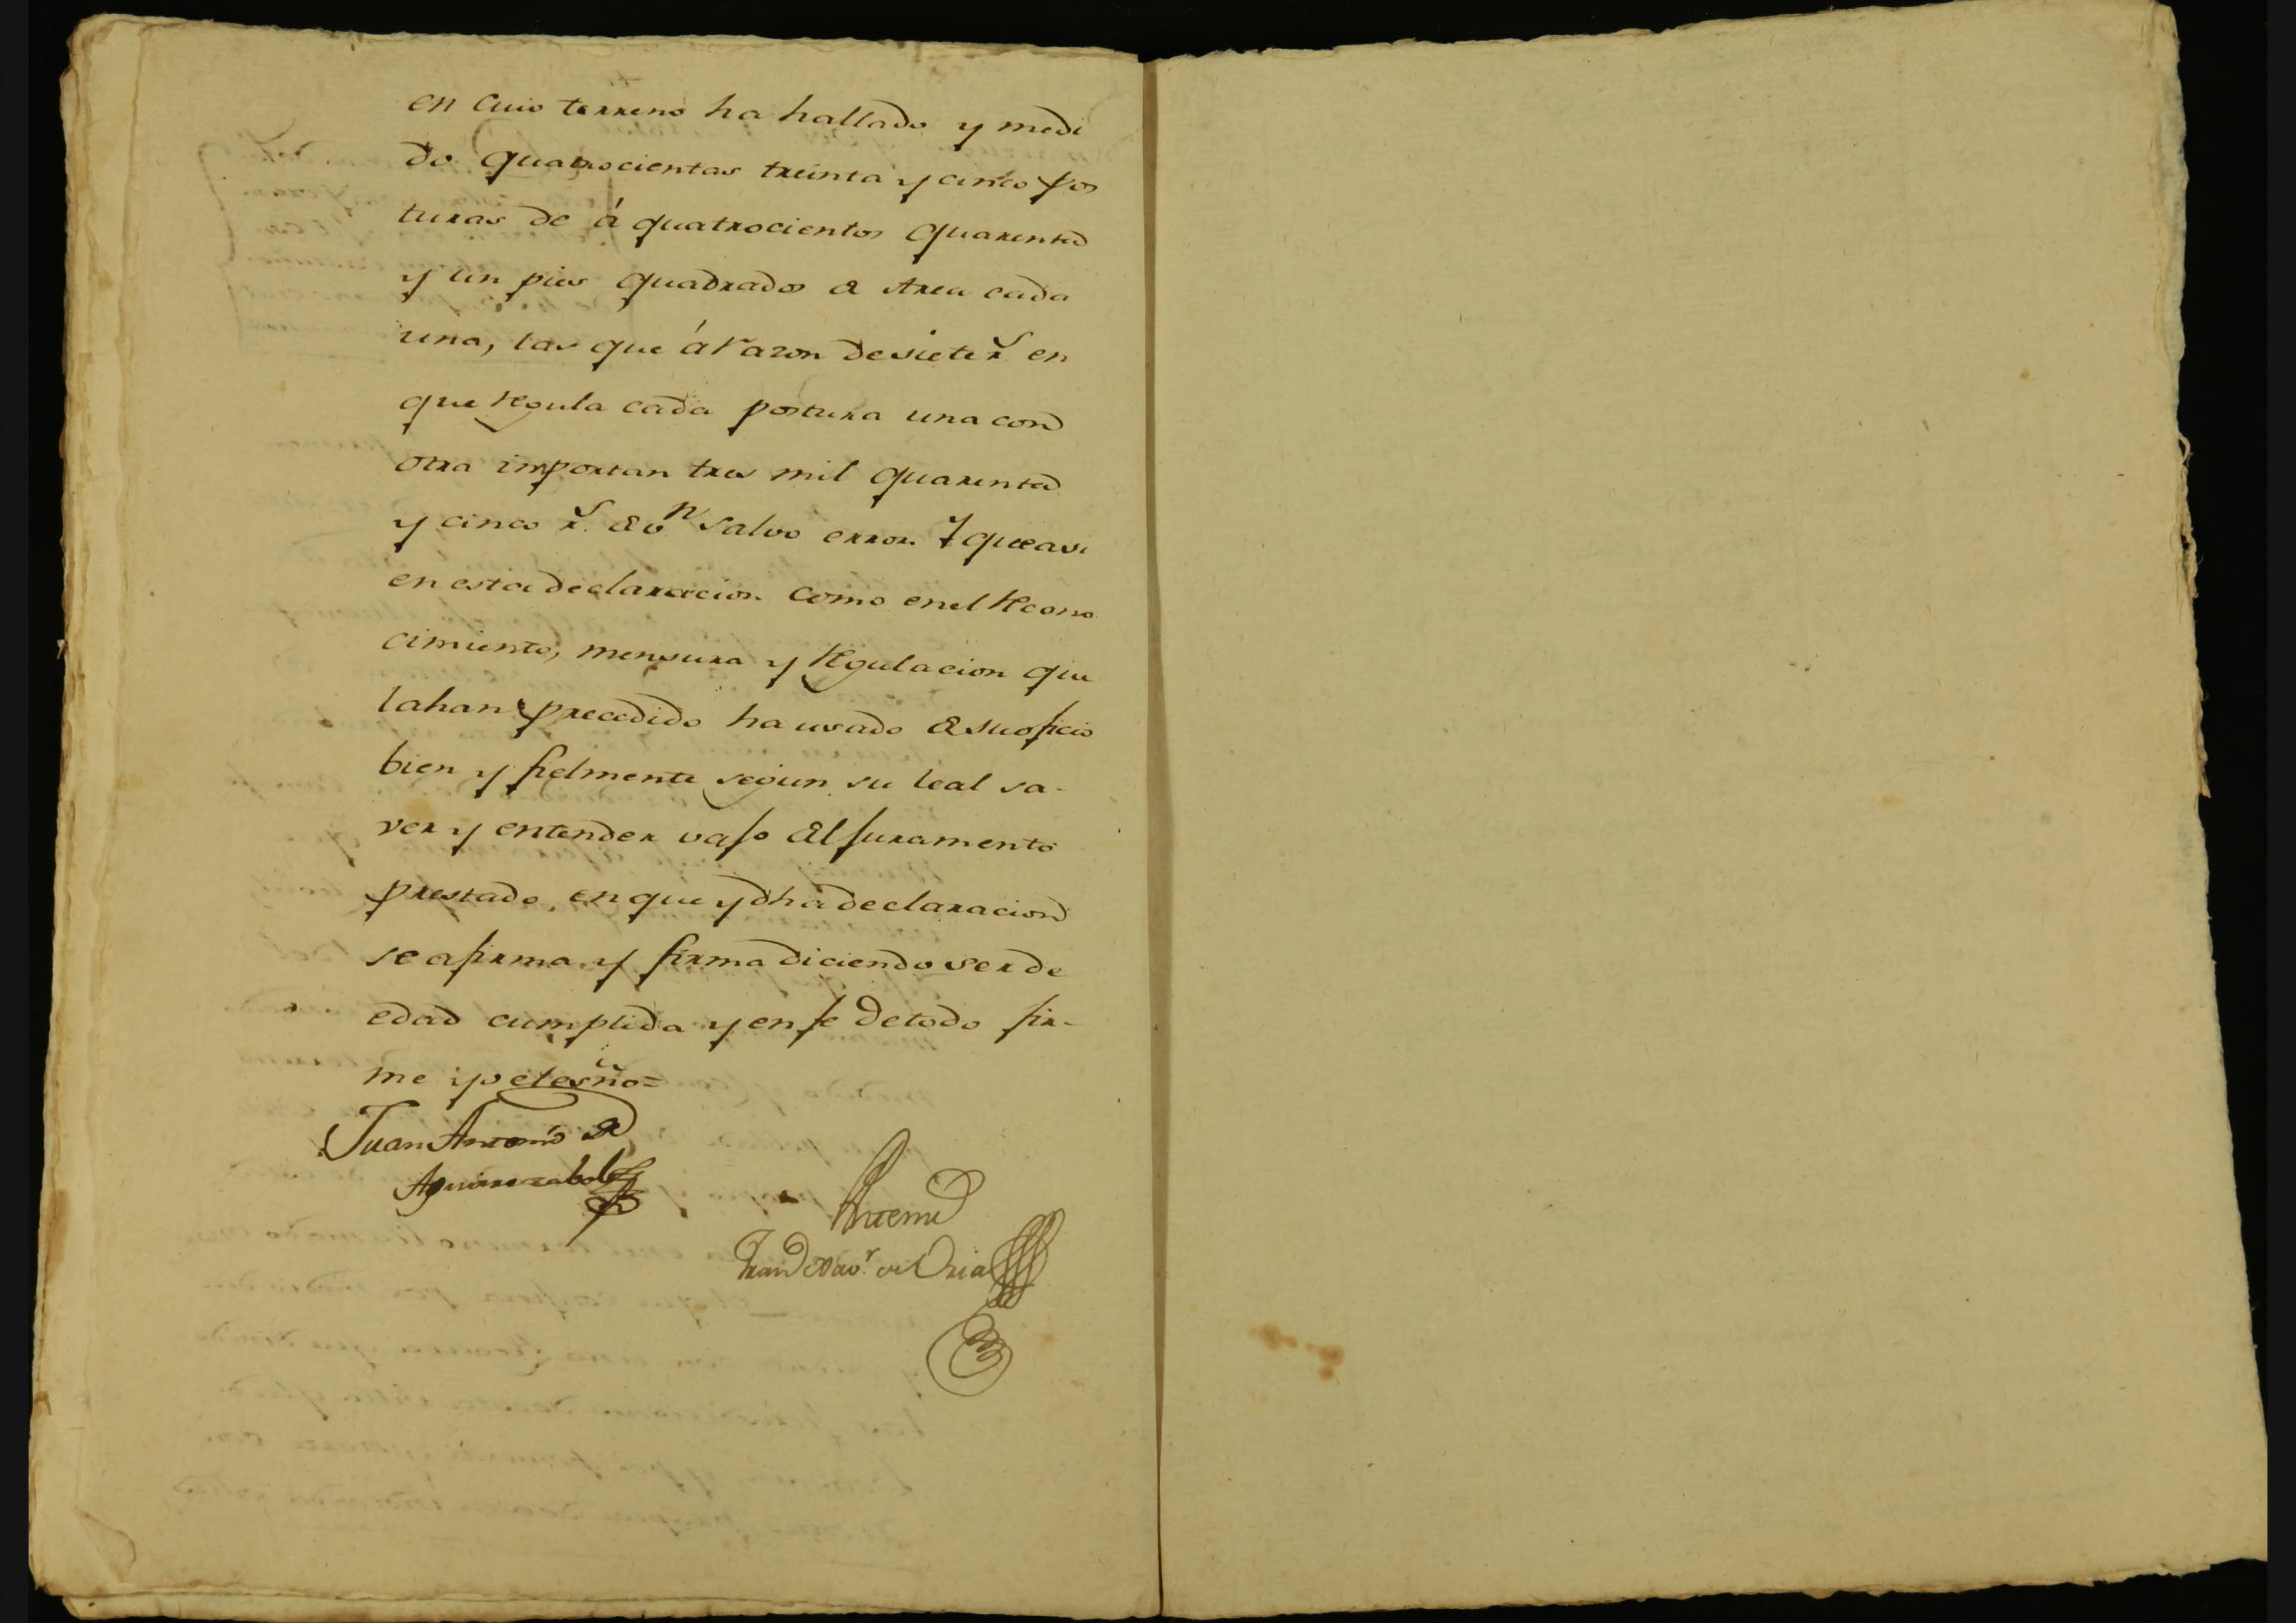 en cuio terreno ha hallado y medi
do quatrocientas treinta y cinco pos
turas de á quatrocientos quarenta
y un pies quadrados de Area cada
una, las que á razon de siete rs. en
que regula cada postura una con
otra importan tres mil quarenta
y cinco rs. de vn. salvo error. Y que asi
en esta declaracion como en el recono
cimiento, mensura y regulacion que
la han precedido ha usado de su oficio
bien y fielmente segun su leal sa-
ver y entender vajo del juramento
prestado, en que y dha declaracion
se afirma y firma diciendo ser de
edad cumplida y en fe de todo fir-
me yo el essno=
Juan Antonio de
Aguirrezabal
Antemi
Fran Xavr. de Oria